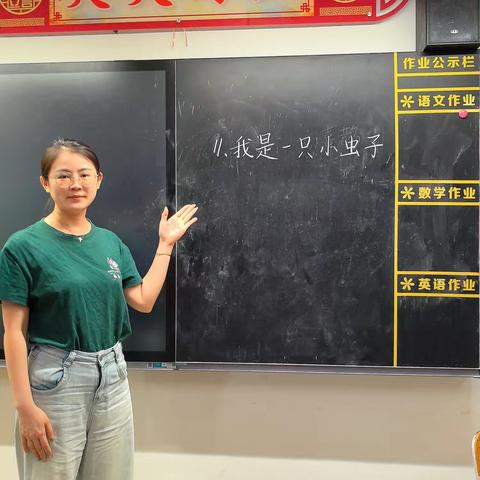 11、我是一只小虫子
作业公示栏
语文作业
数学作业
英语作业